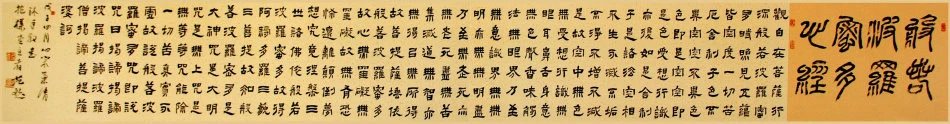 般若
波羅
蜜多
心經
觀自在菩薩行
深般若波羅蜜
多時照見五蘊
皆空度一切苦
厄舍利子色不
異空空不異色
色即是空空即
是色受想行識
亦復如是舍利
子是諸法空相
不生不滅不垢
不淨不增不減
是故空中無色
無受想行識無
眼耳鼻舌身意
無色聲香味觸
法無眼界乃至
無意識界無無
明亦無無明盡
乃至無老死亦
無老死盡無苦
集滅道無智亦
無得以無所得
故菩提薩埵依
般若波羅蜜多
故心無罣礙無
罣礙故無有恐
怖遠離顛倒夢
想究竟涅槃三
世諸佛依般若
波羅蜜多故得
阿耨多羅三藐
三菩提故知般
若波羅蜜多是
大神咒是大明
咒是無上咒是
無等等咒能除
一切苦真實不
虛故說般若波
羅蜜多咒即說
咒曰揭諦揭諦
波羅揭諦波羅
僧揭諦菩提薩
婆訶